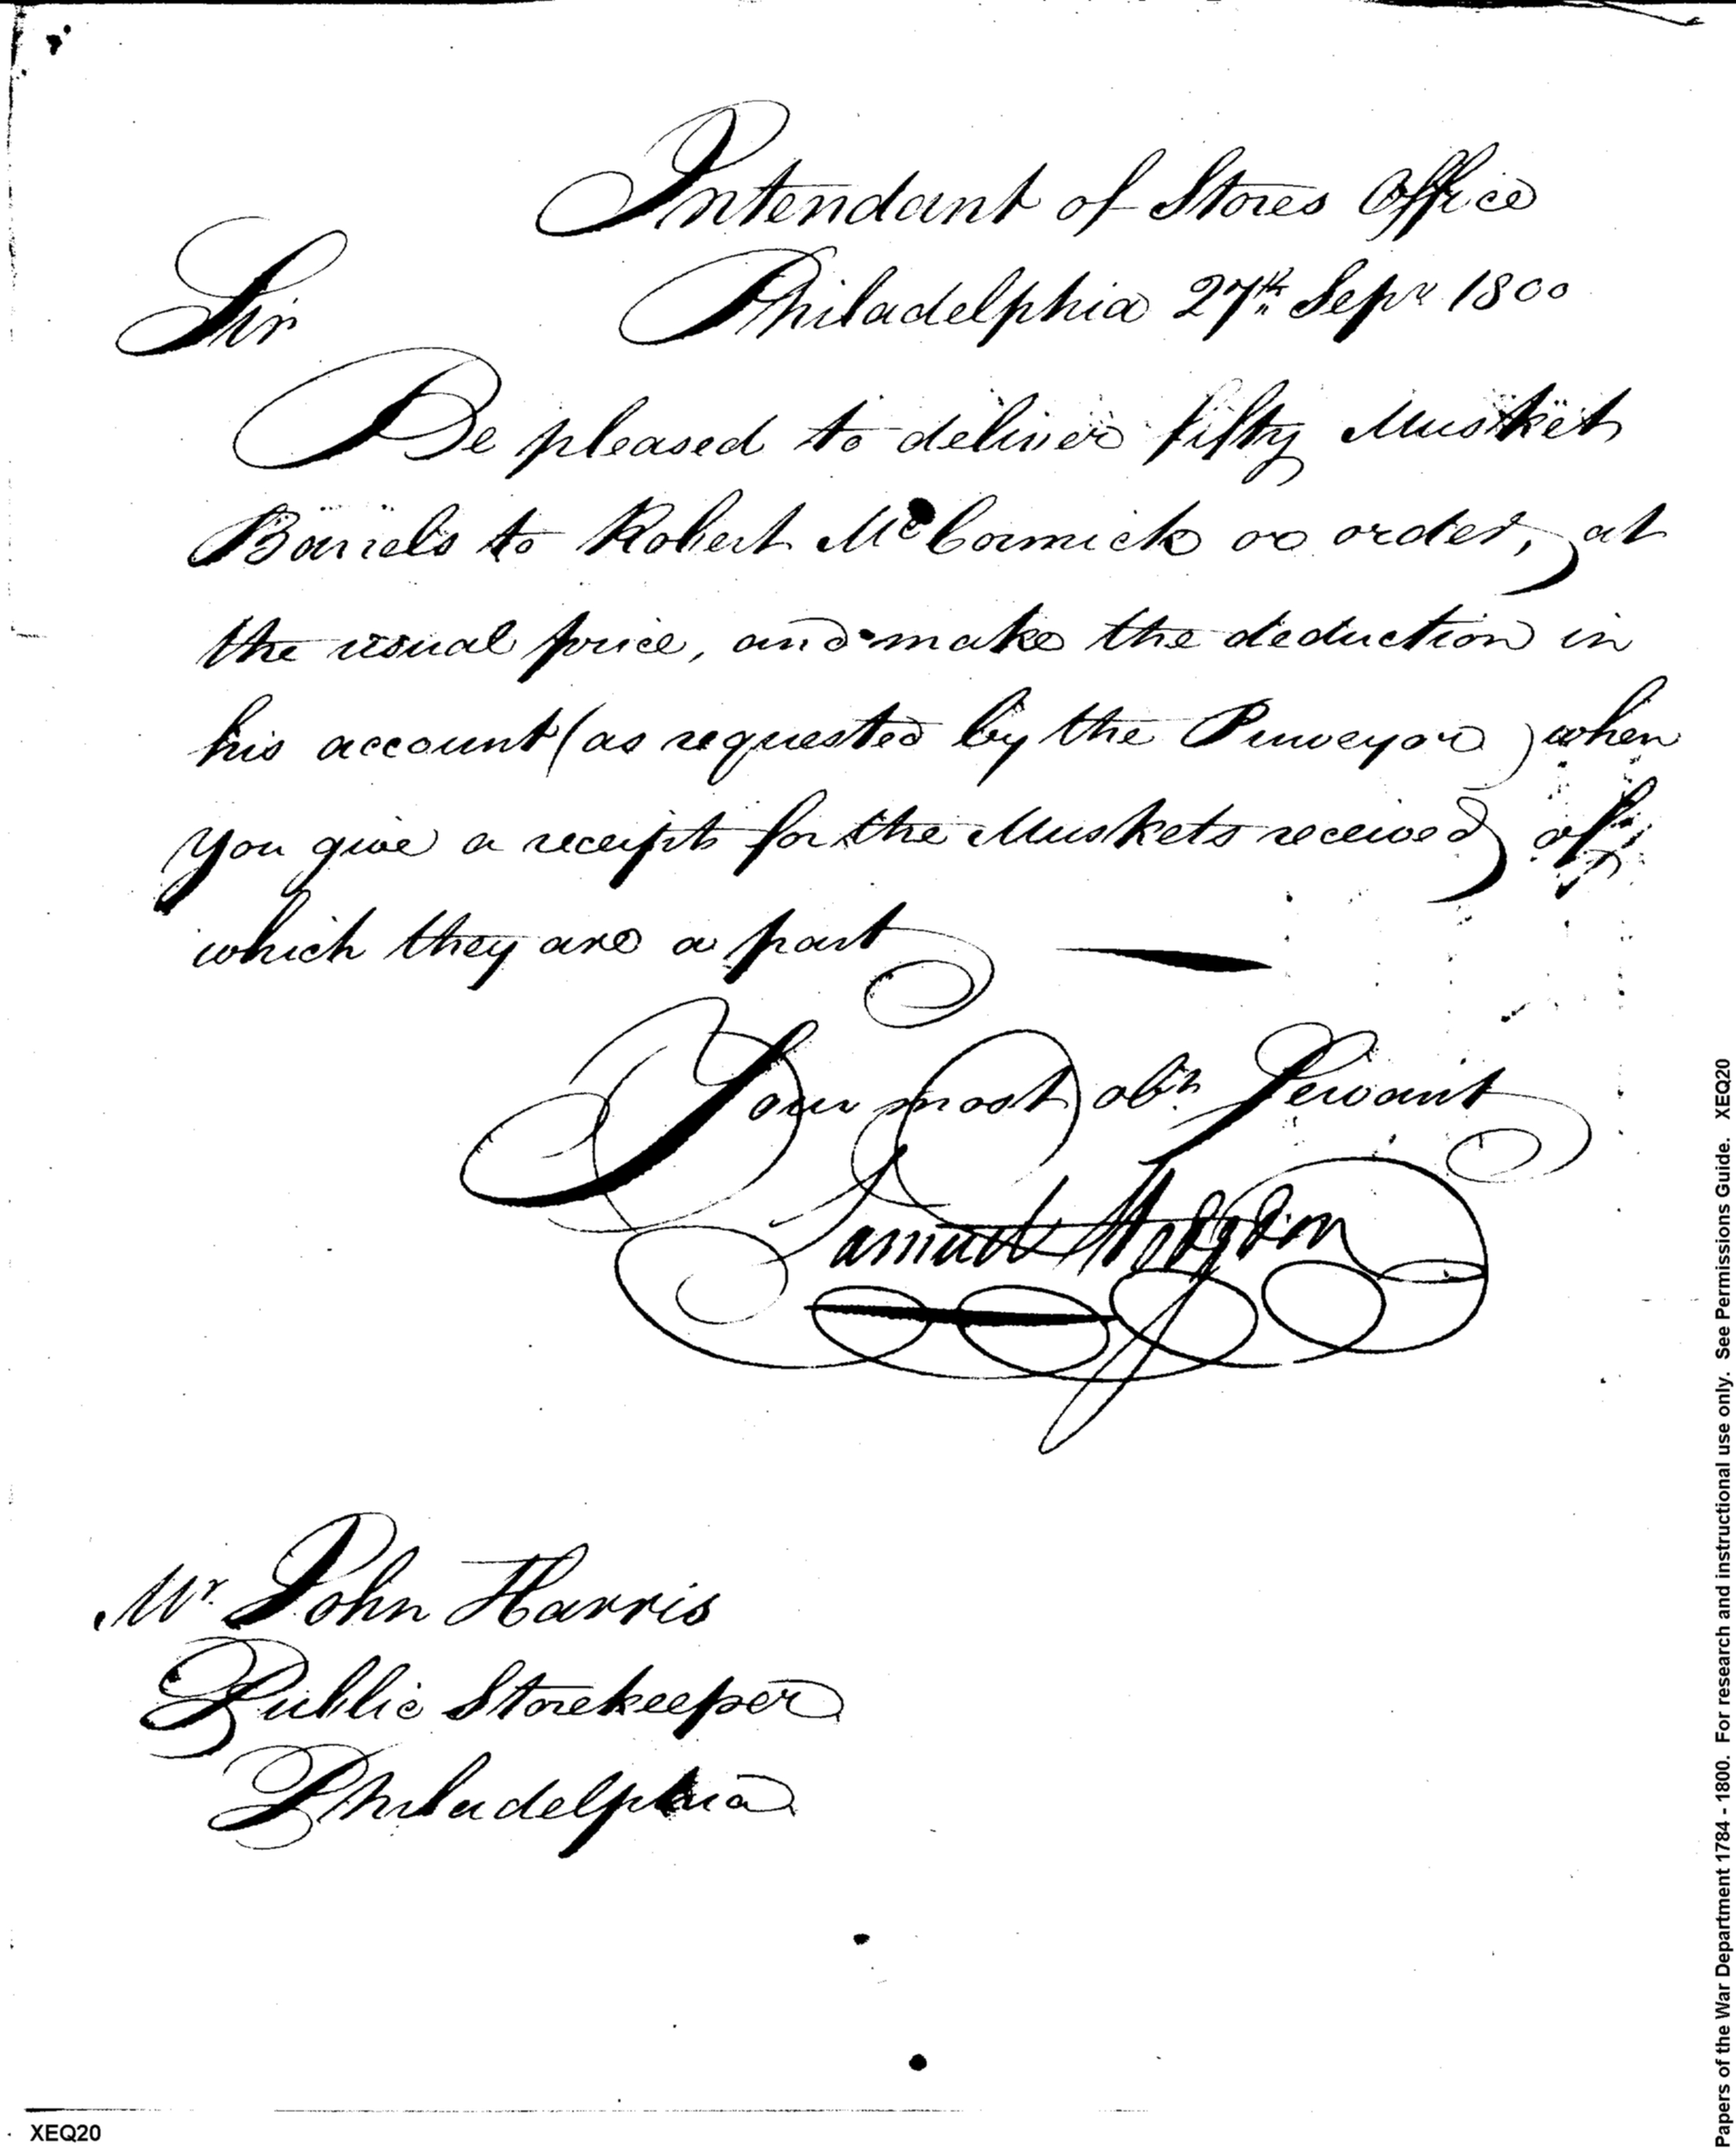 Intendant of Stores Office
Sir Philadelphia 27th Sepr 1800
Be pleased to deliver fifty Musket
Barrels to Robert McCormick or order, at
the usual price, and make the deduction in
his account (as requested by the Purveyor) when
you give a receipt for the Muskets received of
which they are a part
Your most obt Servant
Samuel Hodgdon
Mr John Harris
Public Storekeeper
Philadelphia
XEQ20
Papers of the War Department 1784 - 1800. For research and instructional use only. See Permissions Guide. XEQ20